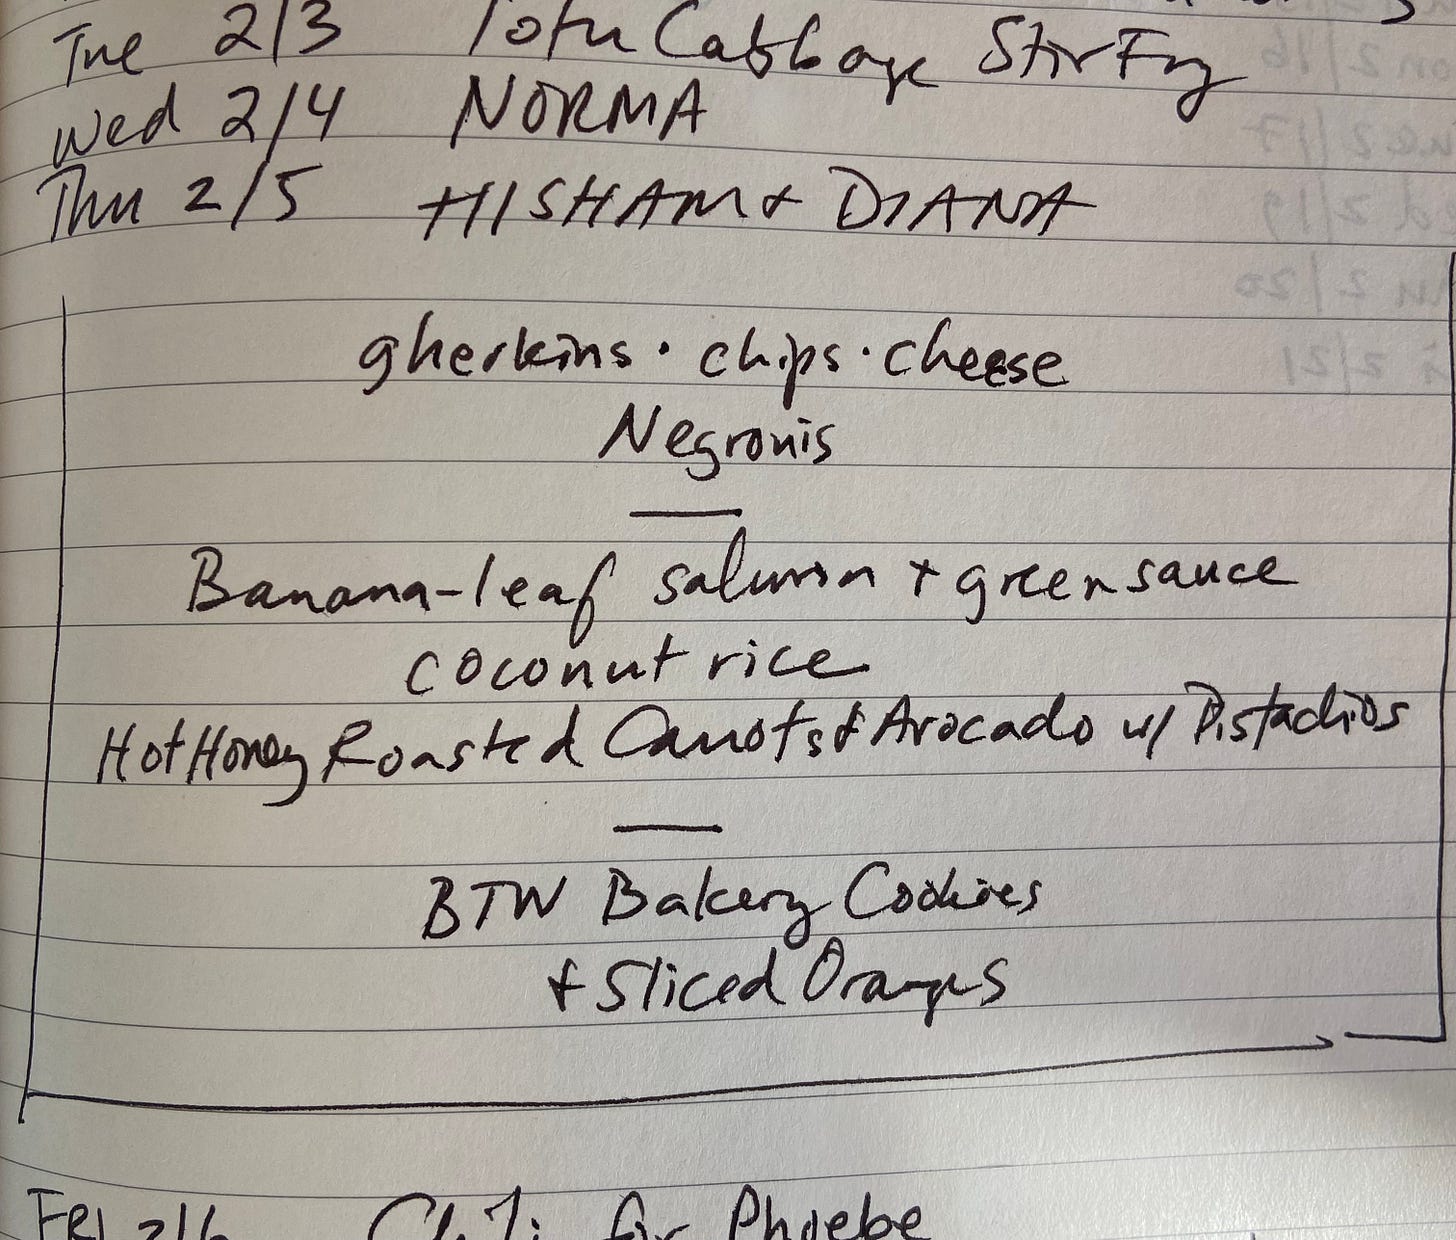 Tue 2/3 Tofu Cabbage Stir Fry
Wed 2/4 NORMA
Thu 2/5 HISHAM + DIANA
gherkins · chips · cheese
Negronis
Banana-leaf salmon + green sauce
coconut rice
Hot Honey Roasted Carrots & Avocado w/ Pistachios
BTW Bakery Cookies
+ Sliced Oranges
FRI 2/6 Chili for Phoebe
on 2/16
ue 2/17
ed 2/19
hu 2/20
i 2/21